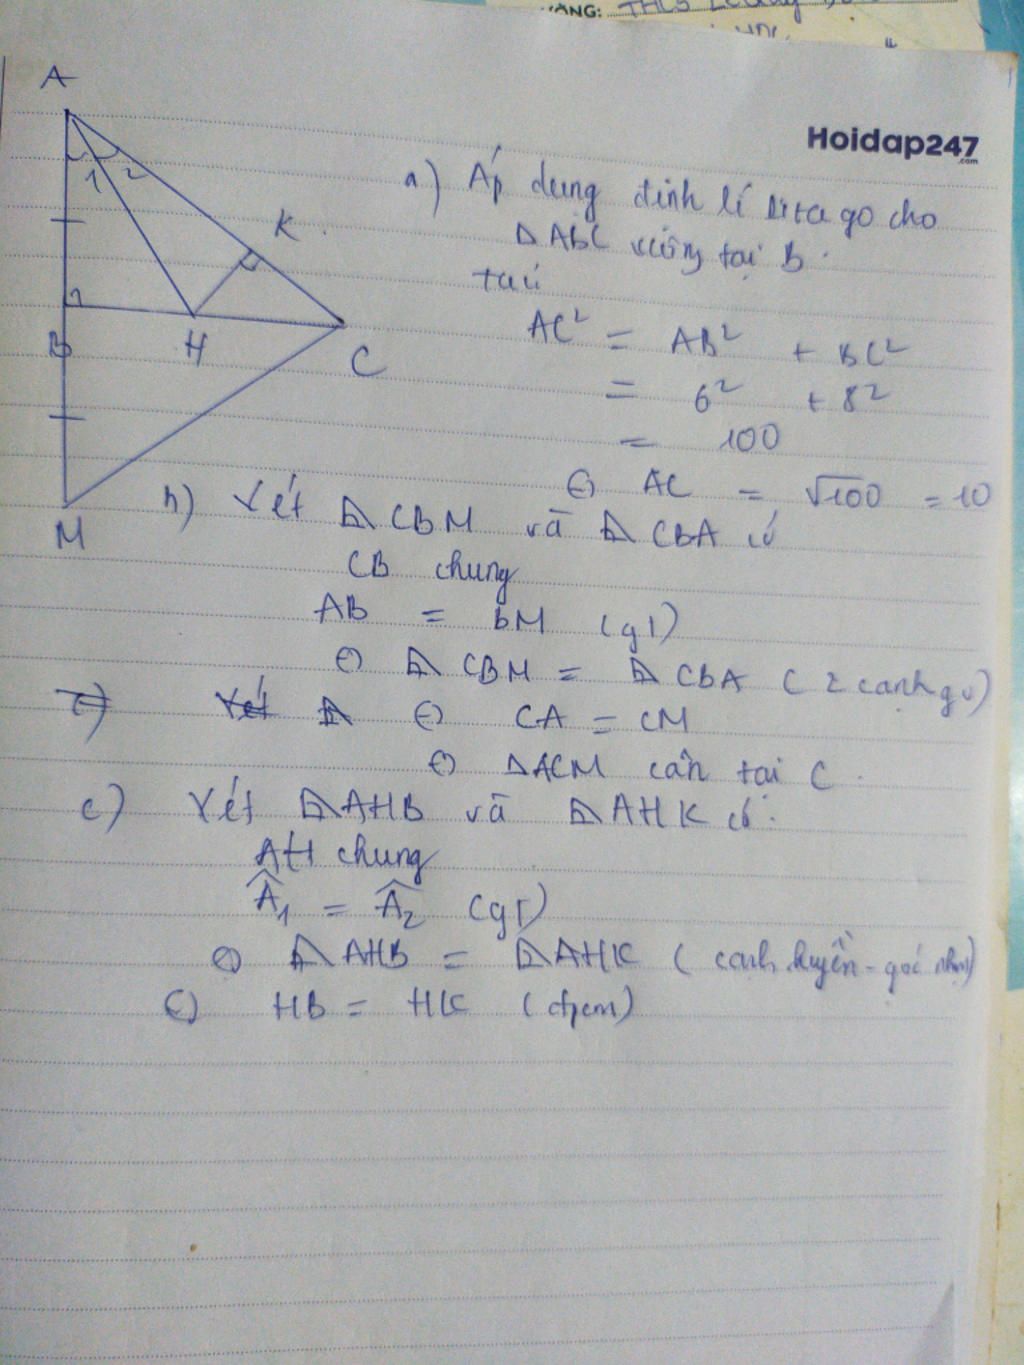 ÔNG: THCS
Hoidap247
.com
A
1 2
K
B H C
M
a) Áp dụng định lí Pitago cho
ΔABC vuông tại B
ta có
AC² = AB² + BC²
= 6² + 8²
= 100
AC = √100 = 10
b) Xét ΔCBM và ΔCBA có
CB chung
AB = BM (gt)
ΔCBM = ΔCBA (2 cạnh gv)
c) Xét Δ CA = CM
ΔACM cân tại C.
c) Xét ΔAHB và ΔAHK có:
AH chung
Â₁ = Â₂ (gt)
ΔAHB = ΔAHK (cạnh huyền - góc nhọn)
HB = HK (đpcm)